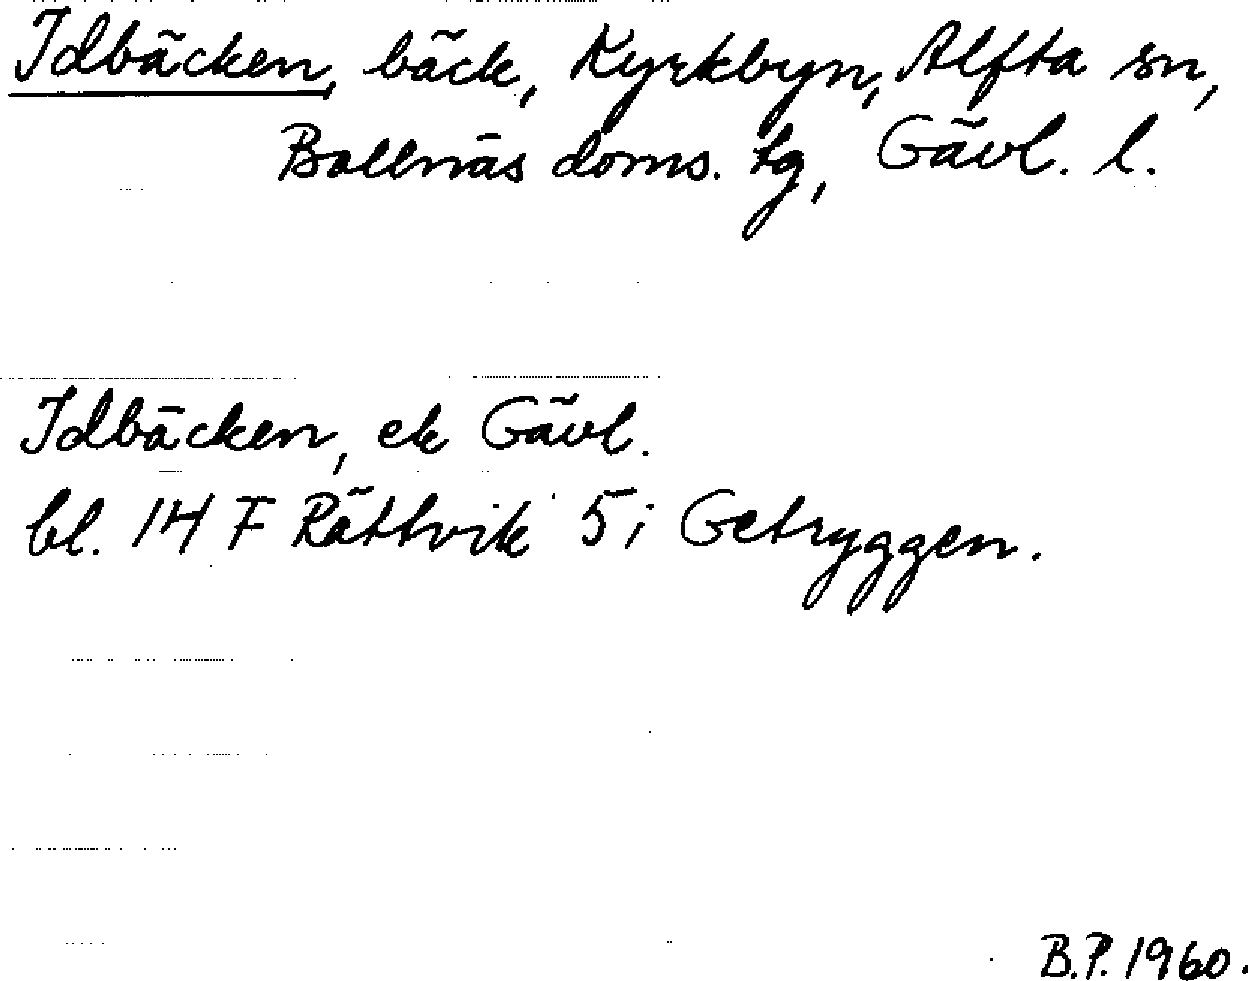 Idbäcken, bäck, Kyrkbyn, Alfta sn,
Bollnäs doms. tg, Gävl. l.
Idbäcken, ek Gävl.
bl. 14 F Rättvik 5 i Getryggen.
B.P. 1960.